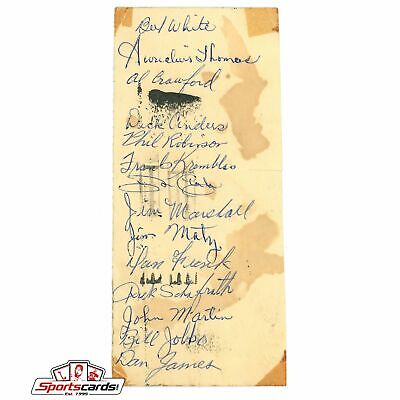 Del White
Aurelius Thomas
Al Crawford
Dick Anders
Phil Robinson
Frank Kremblas
Don Clark
Jim Marshall
Jim Matz
Dan
Dick Schafrath
John Martin
Bill Jobko
Dan James
Sportscards.com
Est. 1995